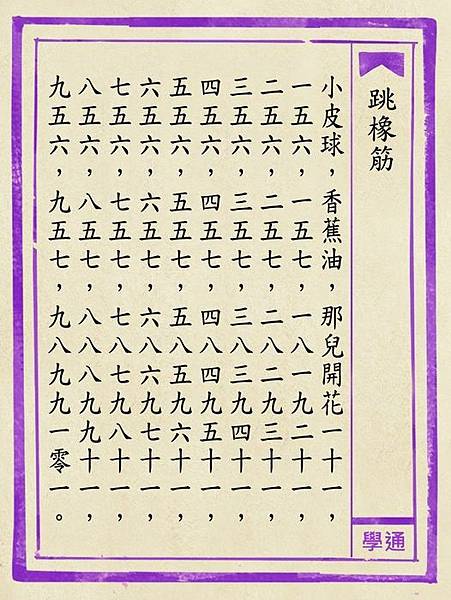 跳橡筋
小皮球，香蕉油，那兒開花一十一，
一五六，一五七，一八一九二十一，
二五六，二五七，二八二九三十一，
三五六，三五七，三八三九四十一，
四五六，四五七，四八四九五十一，
五五六，五五七，五八五九六十一，
六五六，六五七，六八六九七十一，
七五六，七五七，七八七九八十一，
八五六，八五七，八八八九九十一，
九五六，九五七，九八九九一零一。
學通